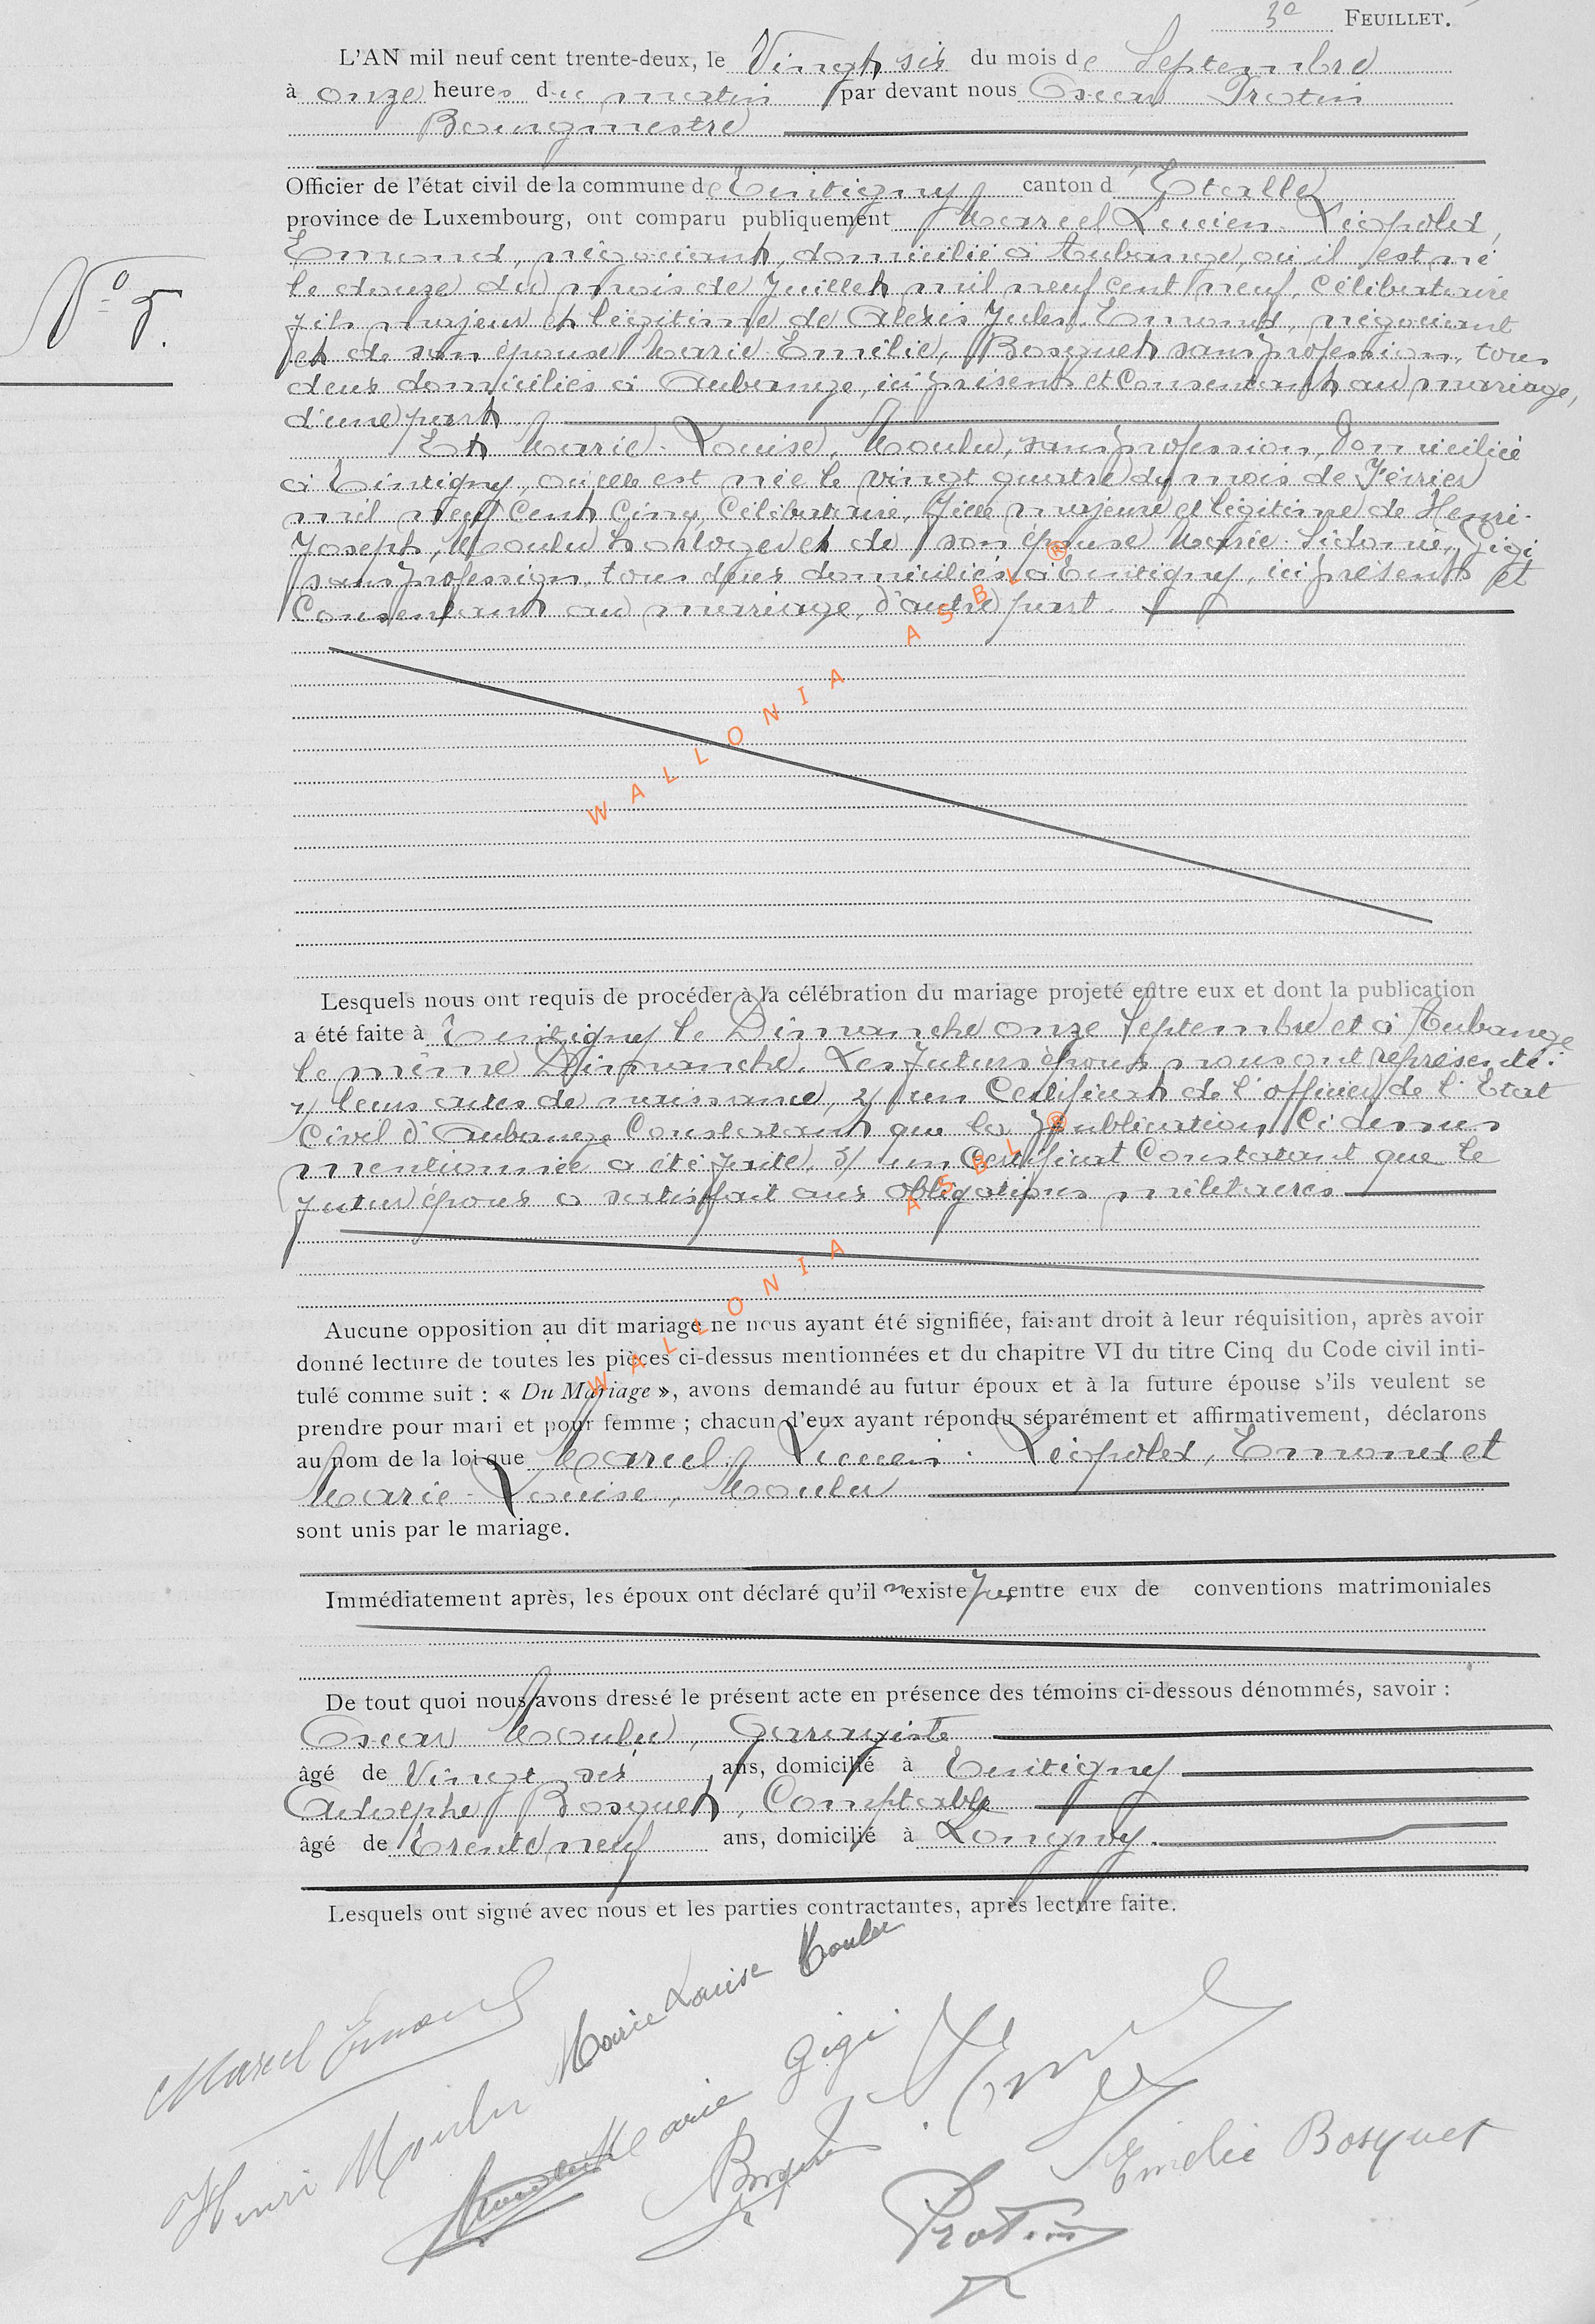 3e FEUILLET.
L'AN mil neuf cent trente-deux, le Vingt six du mois de Septembre
à onze heures du matin par devant nous Oscar Protin
Bourgmestre
Officier de l'état civil de la commune de Tintigny canton d'Etalle
province de Luxembourg, ont comparu publiquement Marcel Lucien Léopold,
Emond, négociant, domicilié à Aubange, où il est né
le douze du mois de Juillet mil neuf cent neuf, Célibataire
fils majeur et légitime de Alexis Jules, Emond, négociant
et de son épouse Marie-Emélie, Bosquet sans profession, tous
deux domiciliés à Aubange, ici présents et Consentant au mariage,
d'une part.
Et Marie-Louise, Moulu, sans profession, domiciliée
à Tintigny, où elle est née le vingt quatre du mois de Février
mil neuf Cent Cinq, Célibataire, fille majeure et légitime de Henri-
Joseph, Moulu horloger et de son épouse Marie-Sidonie, Gigi
sans profession, tous deux domiciliés à Tintigny, ici présents et
Consentant au mariage, d'autre part.
WALLONIA ASBL ®
Lesquels nous ont requis de procéder à la célébration du mariage projeté entre eux et dont la publication
a été faite à Tintigny le Dimanche onze Septembre et à Aubange
le même Dimanche. Les futurs époux nous ont représenté:
1/ leurs actes de naissance, 2/ un Certificat de l'officier de l'Etat
Civil d'Aubange Constatant que la publication Ci dessus
mentionnée a été faite, 3/ un Certificat Constatant que le
futur époux a satisfait aux obligations militaires
WALLONIA ASBL ®
Aucune opposition au dit mariage ne nous ayant été signifiée, faisant droit à leur réquisition, après avoir
donné lecture de toutes les pièces ci-dessus mentionnées et du chapitre VI du titre Cinq du Code civil inti-
tulé comme suit : « Du Mariage », avons demandé au futur époux et à la future épouse s'ils veulent se
prendre pour mari et pour femme ; chacun d'eux ayant répondu séparément et affirmativement, déclarons
au nom de la loi que Marcel Lucien Léopold, Emond et
Marie-Louise, Moulu
sont unis par le mariage.
Immédiatement après, les époux ont déclaré qu'il n'existe pas entre eux de conventions matrimoniales
De tout quoi nous avons dressé le présent acte en présence des témoins ci-dessous dénommés, savoir :
Oscar Moulu, Garagiste
âgé de Vingt six ans, domicilié à Tintigny
Adolphe Bosquet, Comptable
âgé de Trente neuf ans, domicilié à Longwy.
Lesquels ont signé avec nous et les parties contractantes, après lecture faite.
Marcel Emond
Marie Louise Moulu
Henri Moulu
Marie Gigi
Bosquet
Emélie Bosquet
Protin
No 5.